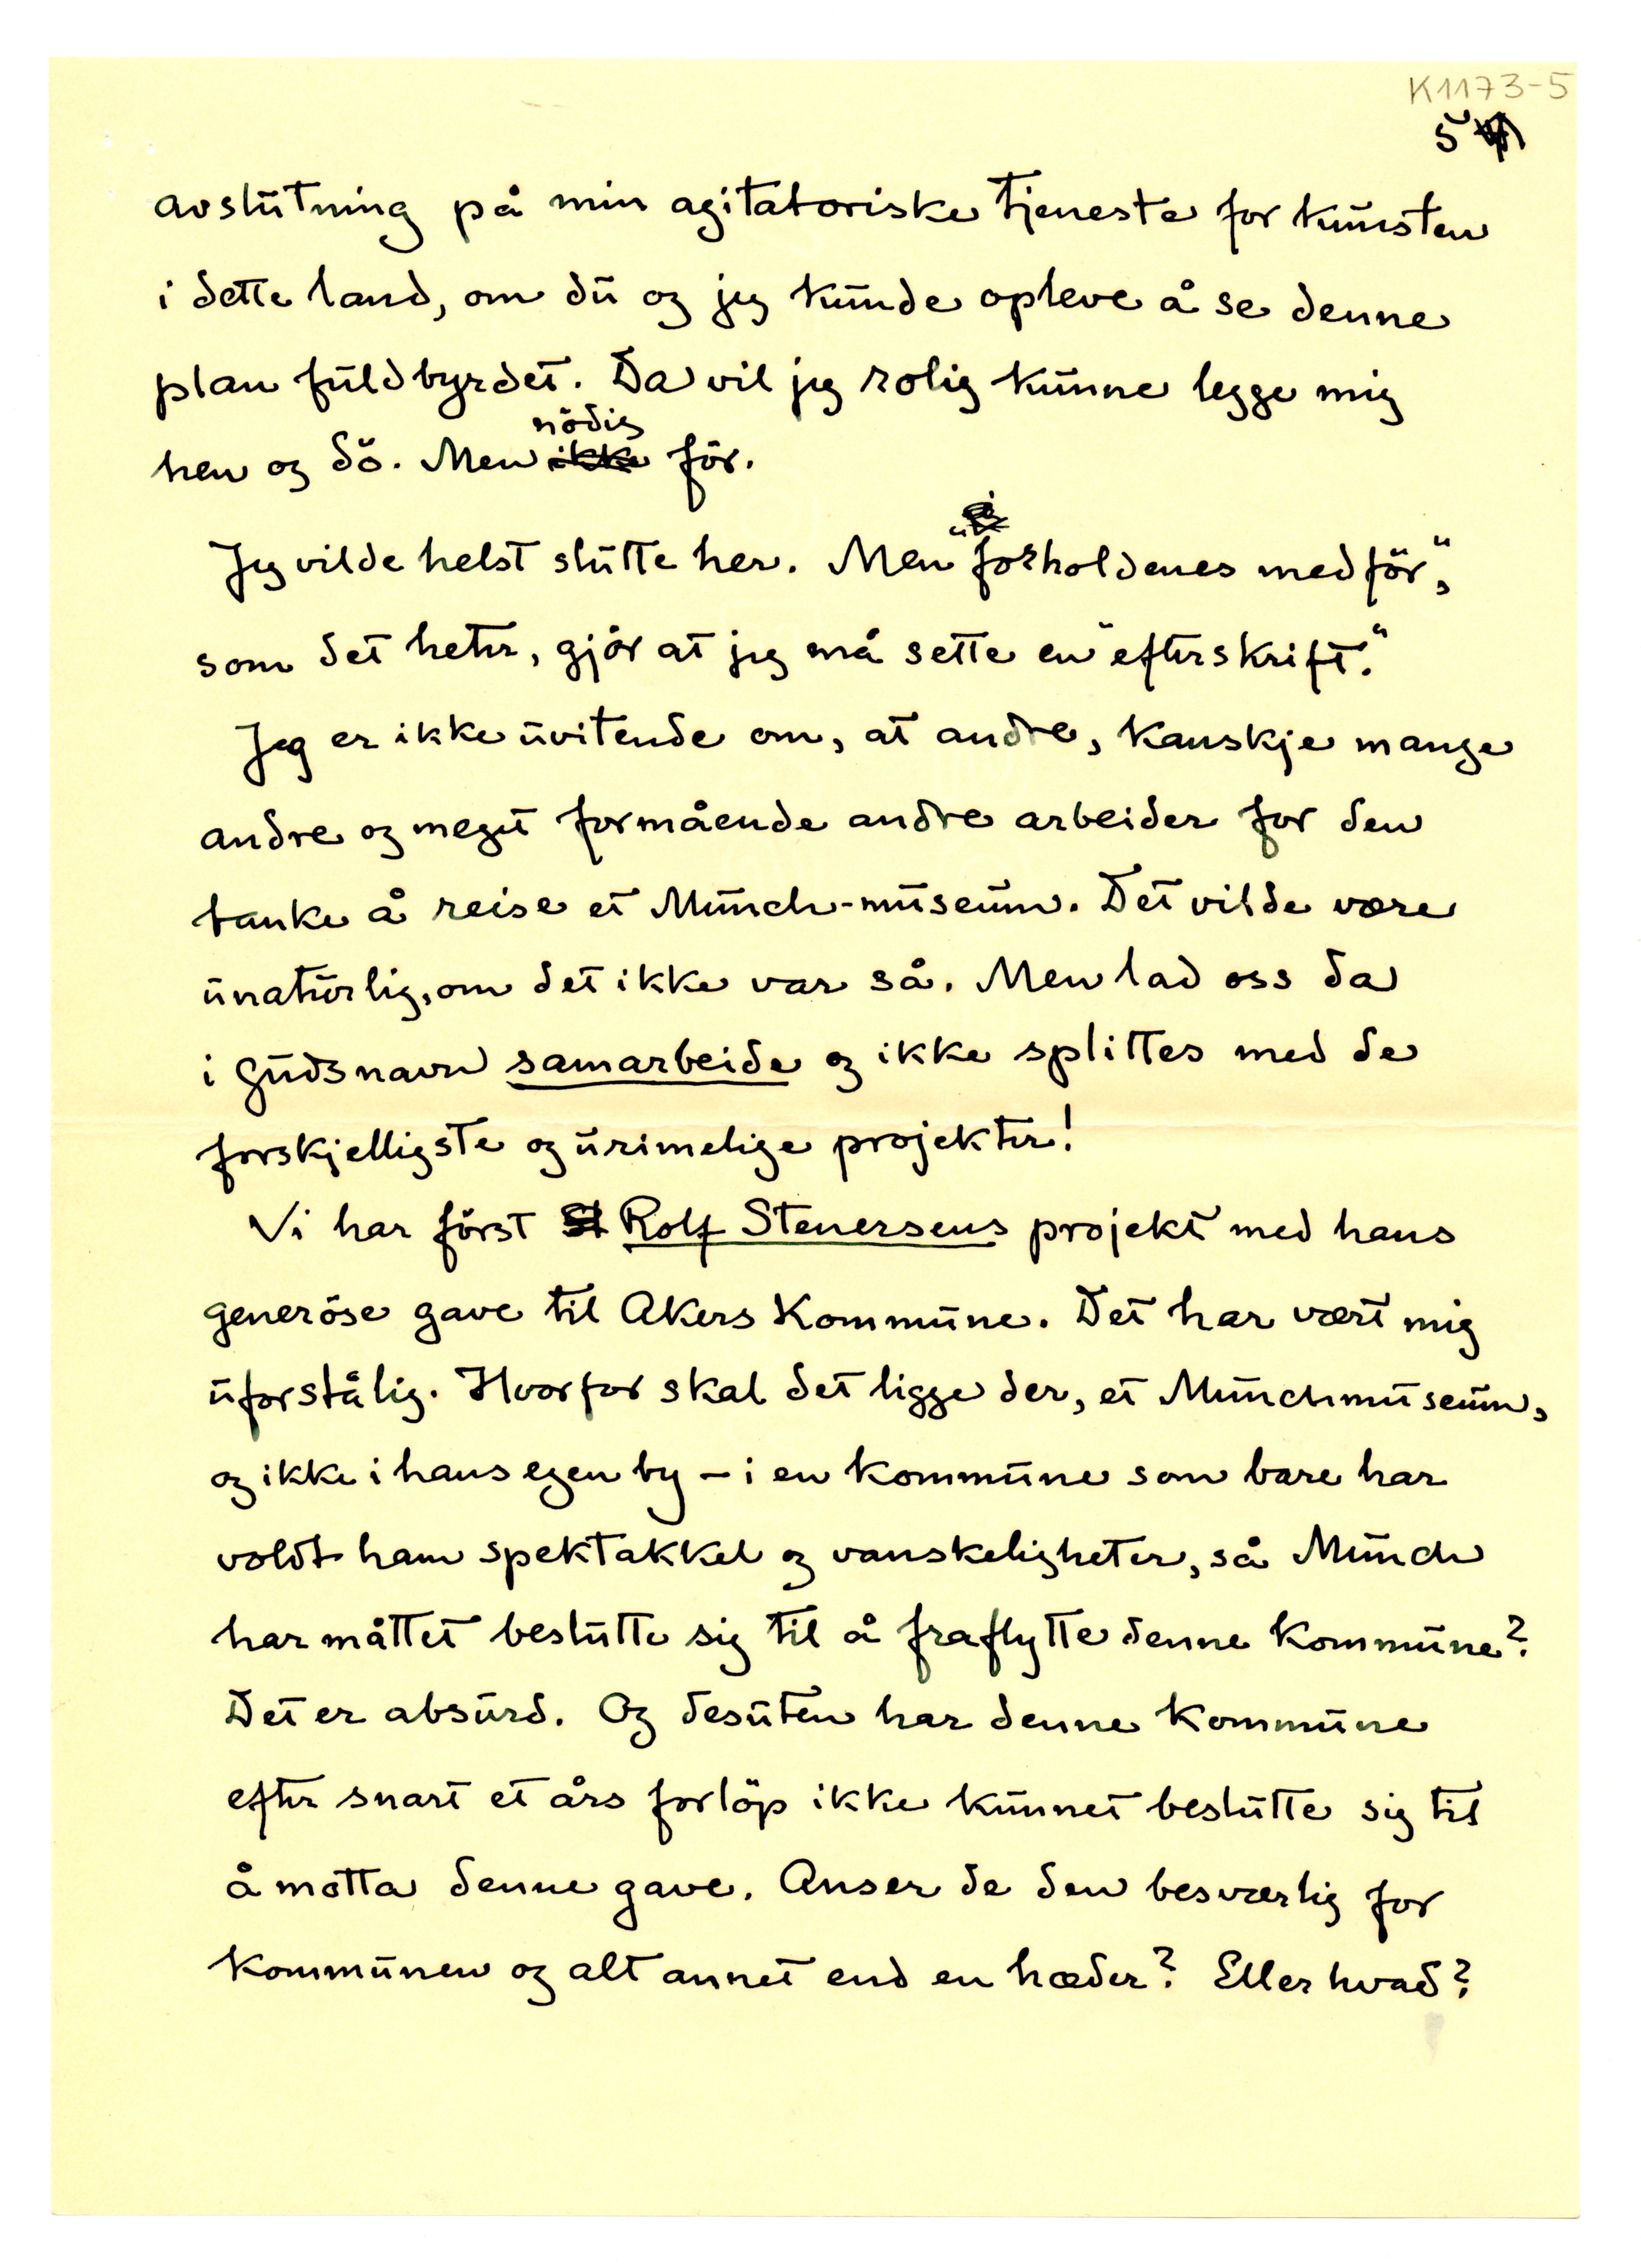 K1173-5
5
avslutning på min agitatoriske tjeneste for kunsten
i dette land, om du og jeg kunde opleve å se denne
plan fuldbyrdet. Da vil jeg rolig kunne legge mig
nödig
hen og dö. Men ikke för.
Jeg vilde helst slutte her. Men "forholdenes medför",
som det heter, gjör at jeg må sette en "efterskrift".
Jeg er ikke uvitende om, at andre, kanskje mange
andre og meget formående andre arbeider for den
tanke å reise et Munch-museum. Det vilde være
unaturlig, om det ikke var så. Men lad oss da
i Guds navn samarbeide og ikke splittes med de
forskjelligste og urimelige projekter!
Vi har först St Rolf Stenersens projekt med hans
generöse gave til Akers Kommune. Det har vært mig
uforstålig. Hvorfor skal det ligge der, et Munchmuseum,
og ikke i hans egen by – i en kommune som bare har
voldt ham spektakkel og vanskeligheter, så Munch
har måttet beslutte sig til å fraflytte denne kommune?
Det er absurd. Og desuten har denne kommune
efter snart et års forlöp ikke kunnet beslutte sig til
å motta denne gave. Anser de den besværlig for
kommunen og alt annet end en hæder? Eller hvad?